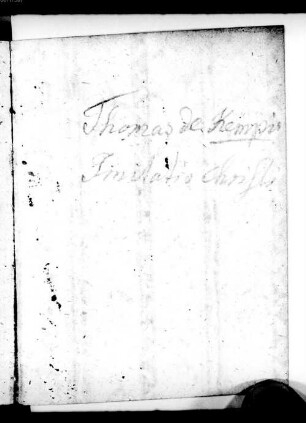 Thomas de Kempis
Imitatio Christi